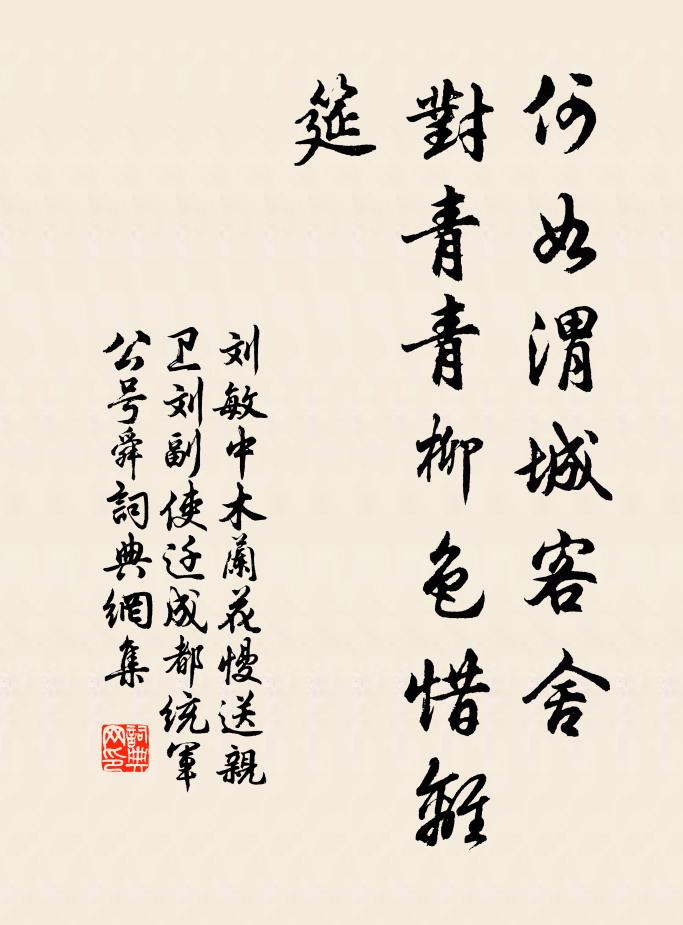 何如渭城客舍
對青青柳色惜離
筵
刘敏中木蘭花慢送親
卫刘副使迁成都统軍
公号舜詞典網集
詞典
网印